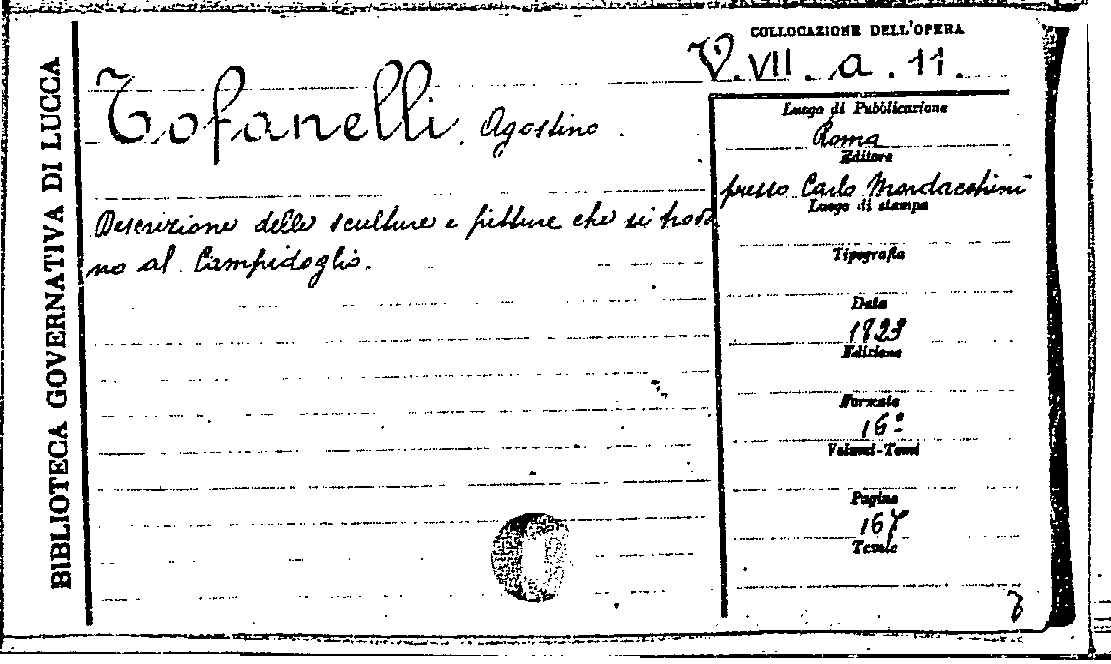 BIBLIOTECA GOVERNATIVA DI LUCCA
COLLOCAZIONE DELL'OPERA
V. VII. a. 11.
Tofanelli, Agostino.
Descrizione delle sculture e pitture che si trova
no al Campidoglio.
Luogo di Pubblicazione
Roma
Editore
presso Carlo Mordacchini
Luogo di stampa
Tipografia
Data
1823
Edizione
Formato
16º
Volumi-Tomi
Pagine
167
Tavole